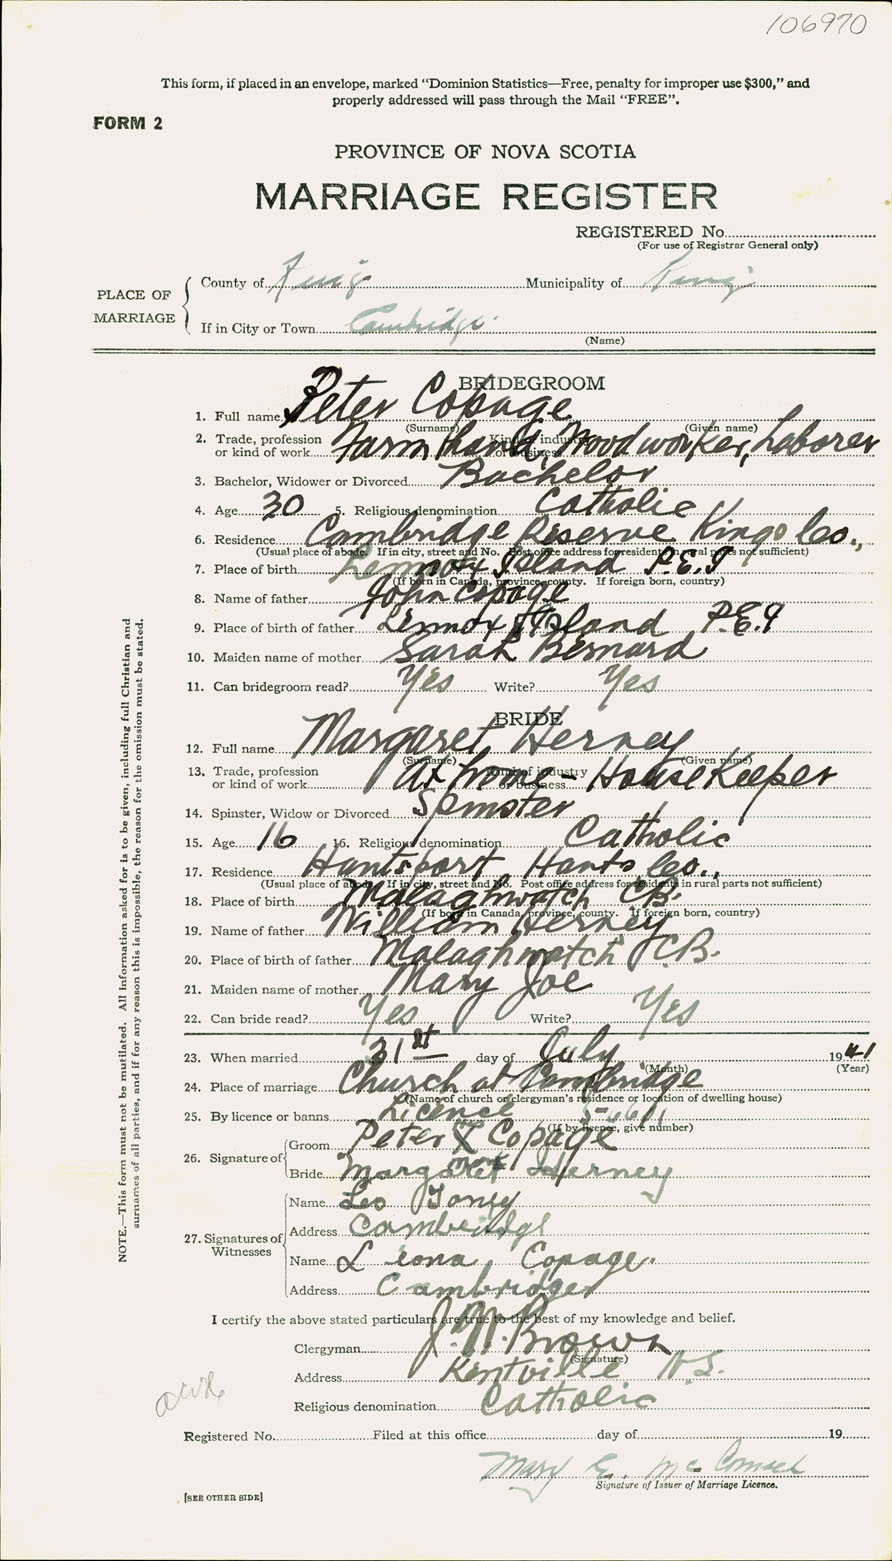 106970
This form, if placed in an envelope, marked "Dominion Statistics—Free, penalty for improper use $300," and
properly addressed will pass through the Mail "FREE".
FORM 2
PROVINCE OF NOVA SCOTIA
MARRIAGE REGISTER
REGISTERED No.
(For use of Registrar General only)
PLACE OF MARRIAGE
County of Kings Municipality of Kings
If in City or Town Cambridge
(Name)
BRIDEGROOM
1. Full name Peter Copage
(Surname) (Given name)
2. Trade, profession or kind of work Farm hand, Woodworker, Laborer
Kind of industry or business
3. Bachelor, Widower or Divorced Bachelor
4. Age 30 5. Religious denomination Catholic
6. Residence Cambridge Reserve Kings Co.,
(Usual place of abode. If in city, street and No. Post office address for residents in rural parts not sufficient)
7. Place of birth Lennox Island P.E.I
(If born in Canada, province, county. If foreign born, country)
8. Name of father John Copage
9. Place of birth of father Lennox Island P.E.I
10. Maiden name of mother Sarah Bernard
11. Can bridegroom read? Yes Write? Yes
BRIDE
12. Full name Margaret Herney
(Surname) (Given name)
13. Trade, profession or kind of work At home - HouseKeeper
Kind of industry or business
14. Spinster, Widow or Divorced Spinster
15. Age 16 16. Religious denomination Catholic
17. Residence Hantsport Hants Co.,
(Usual place of abode. If in city, street and No. Post office address for residents in rural parts not sufficient)
18. Place of birth Malaghwatch C.B.
(If born in Canada, province, county. If foreign born, country)
19. Name of father William Herney
20. Place of birth of father Malaghwatch C.B.
21. Maiden name of mother Mary Joe
22. Can bride read? Yes Write? Yes
23. When married 31st day of July 1941
(Month) (Year)
24. Place of marriage Church at Cambridge
(Name of church or clergyman's residence or location of dwelling house)
25. By licence or banns Licence
(If by licence, give number)
26. Signature of
Groom Peter X Copage
Bride Margaret Herney
27. Signatures of Witnesses
Name Leo Toney
Address Cambridge
Name Leona Copage.
Address Cambridge
I certify the above stated particulars are true to the best of my knowledge and belief.
Clergyman J. N. Brown
(Signature)
Address Kentville N.S.
Religious denomination Catholic
Registered No. Filed at this office day of 19
Mary E.
Signature of Issuer of Marriage Licence.
[SEE OTHER SIDE]
NOTE.—This form must not be mutilated. All information asked for is to be given, including full Christian and
surnames of all parties, and if for any reason this is impossible, the reason for the omission must be stated.